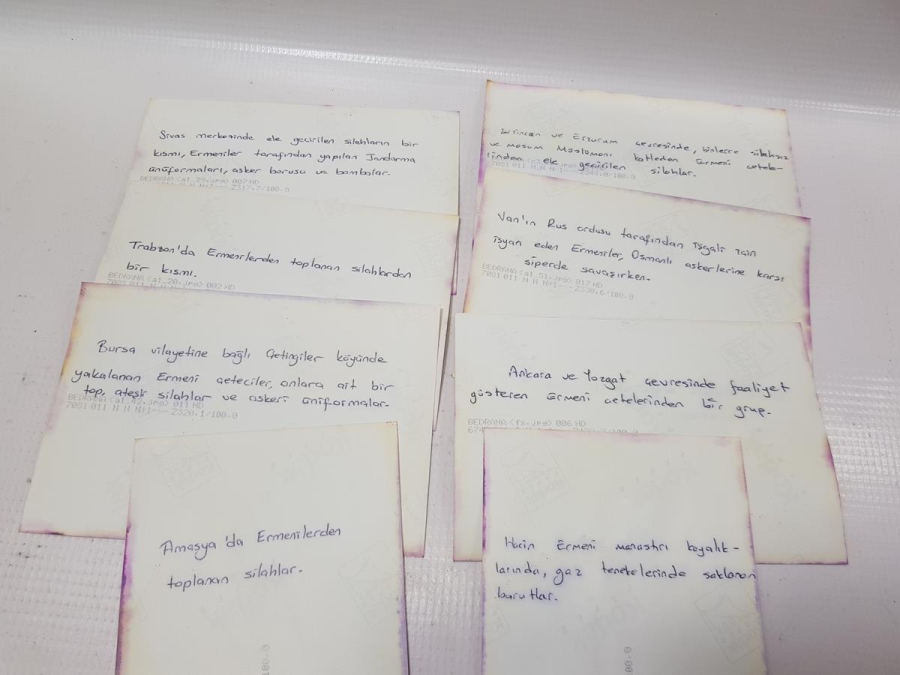 Sivas merkezinde ele geçirilen silahların bir
kısmı, Ermeniler tarafından yapılan Jandarma
üniformaları, asker borusu ve bombalar.
BEDRANA
Trabzon'da Ermenilerden toplanan silahlardan
bir kısmı.
BEDRANA
Bursa vilayetine bağlı Çetingiler köyünde
yakalanan Ermeni çeteciler, onlara ait bir
top, ateşli silahlar ve askeri üniformalar.
BEDRANA
7081 011 N N N 2320.1/100-0
Amasya'da Ermenilerden
toplanan silahlar.
ve Erzurum çevresinde, binlerce silahsız
ve masum Müslümanı katleden Ermeni çetele-
rinden ele geçirilen silahlar.
Van'ın Rus ordusu tarafından işgali için
isyan eden Ermeniler, Osmanlı askerlerine karşı
siperde savaşırken.
BEDRANA
Ankara ve Yozgat çevresinde faaliyet
gösteren Ermeni çetelerinden bir grup.
BEDRANA
Ermeni manastırı kayalık-
larında, gaz tenekelerinde saklanan
barutlar.